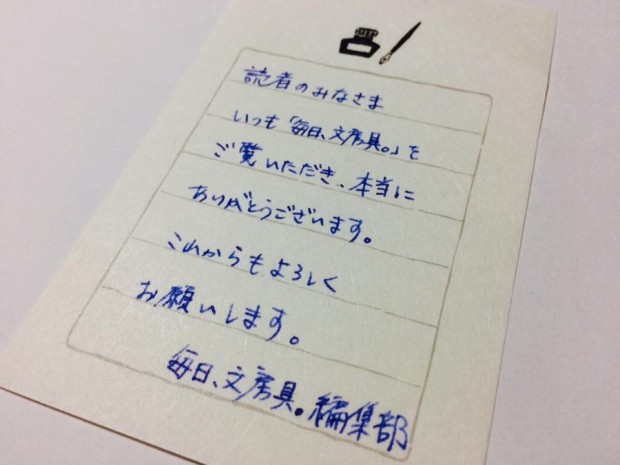 読者のみなさま
いつも「毎日、文房具。」を
ご覧いただき、本当に
ありがとうございます。
これからもよろしく
お願いします。
毎日、文房具。編集部